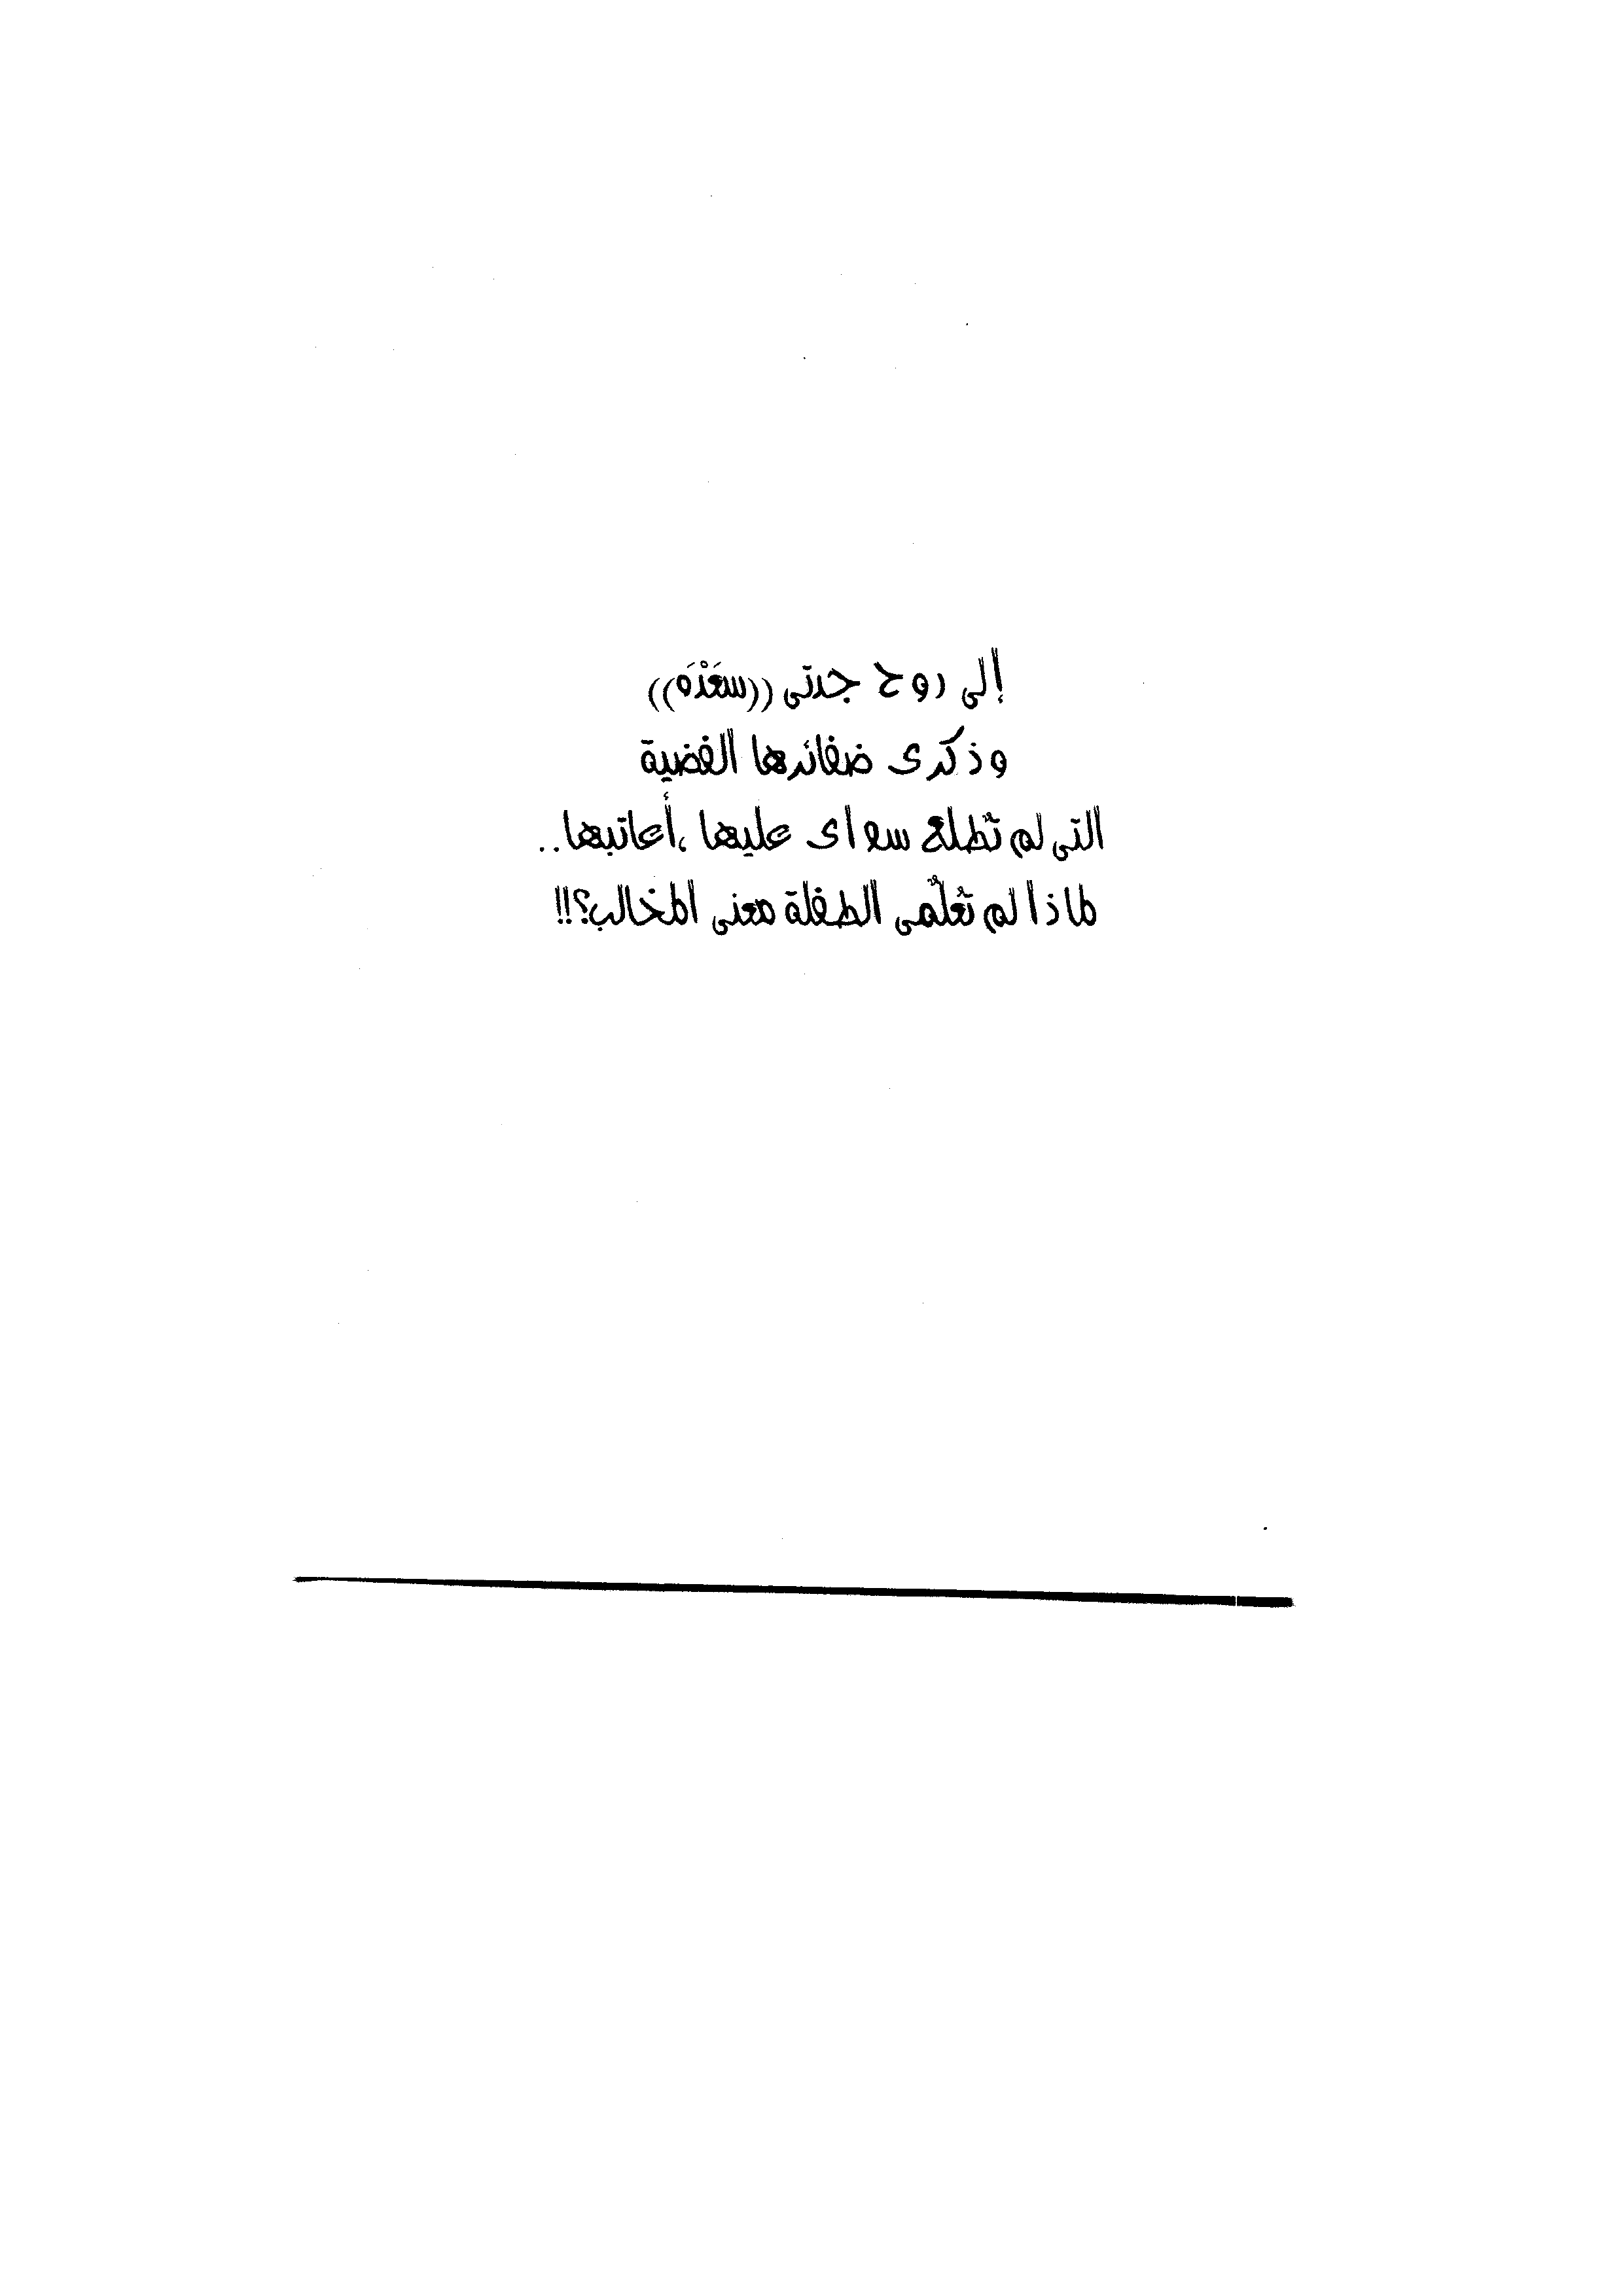 إلى روح جدتى ((سَعْدَه))
وذكرى ضفائرها الفضية
التى لم تُطلع سواى عليها ،أعاتبها..
لماذا لم تُعلِّمى الطفلة معنى المخالب؟!!